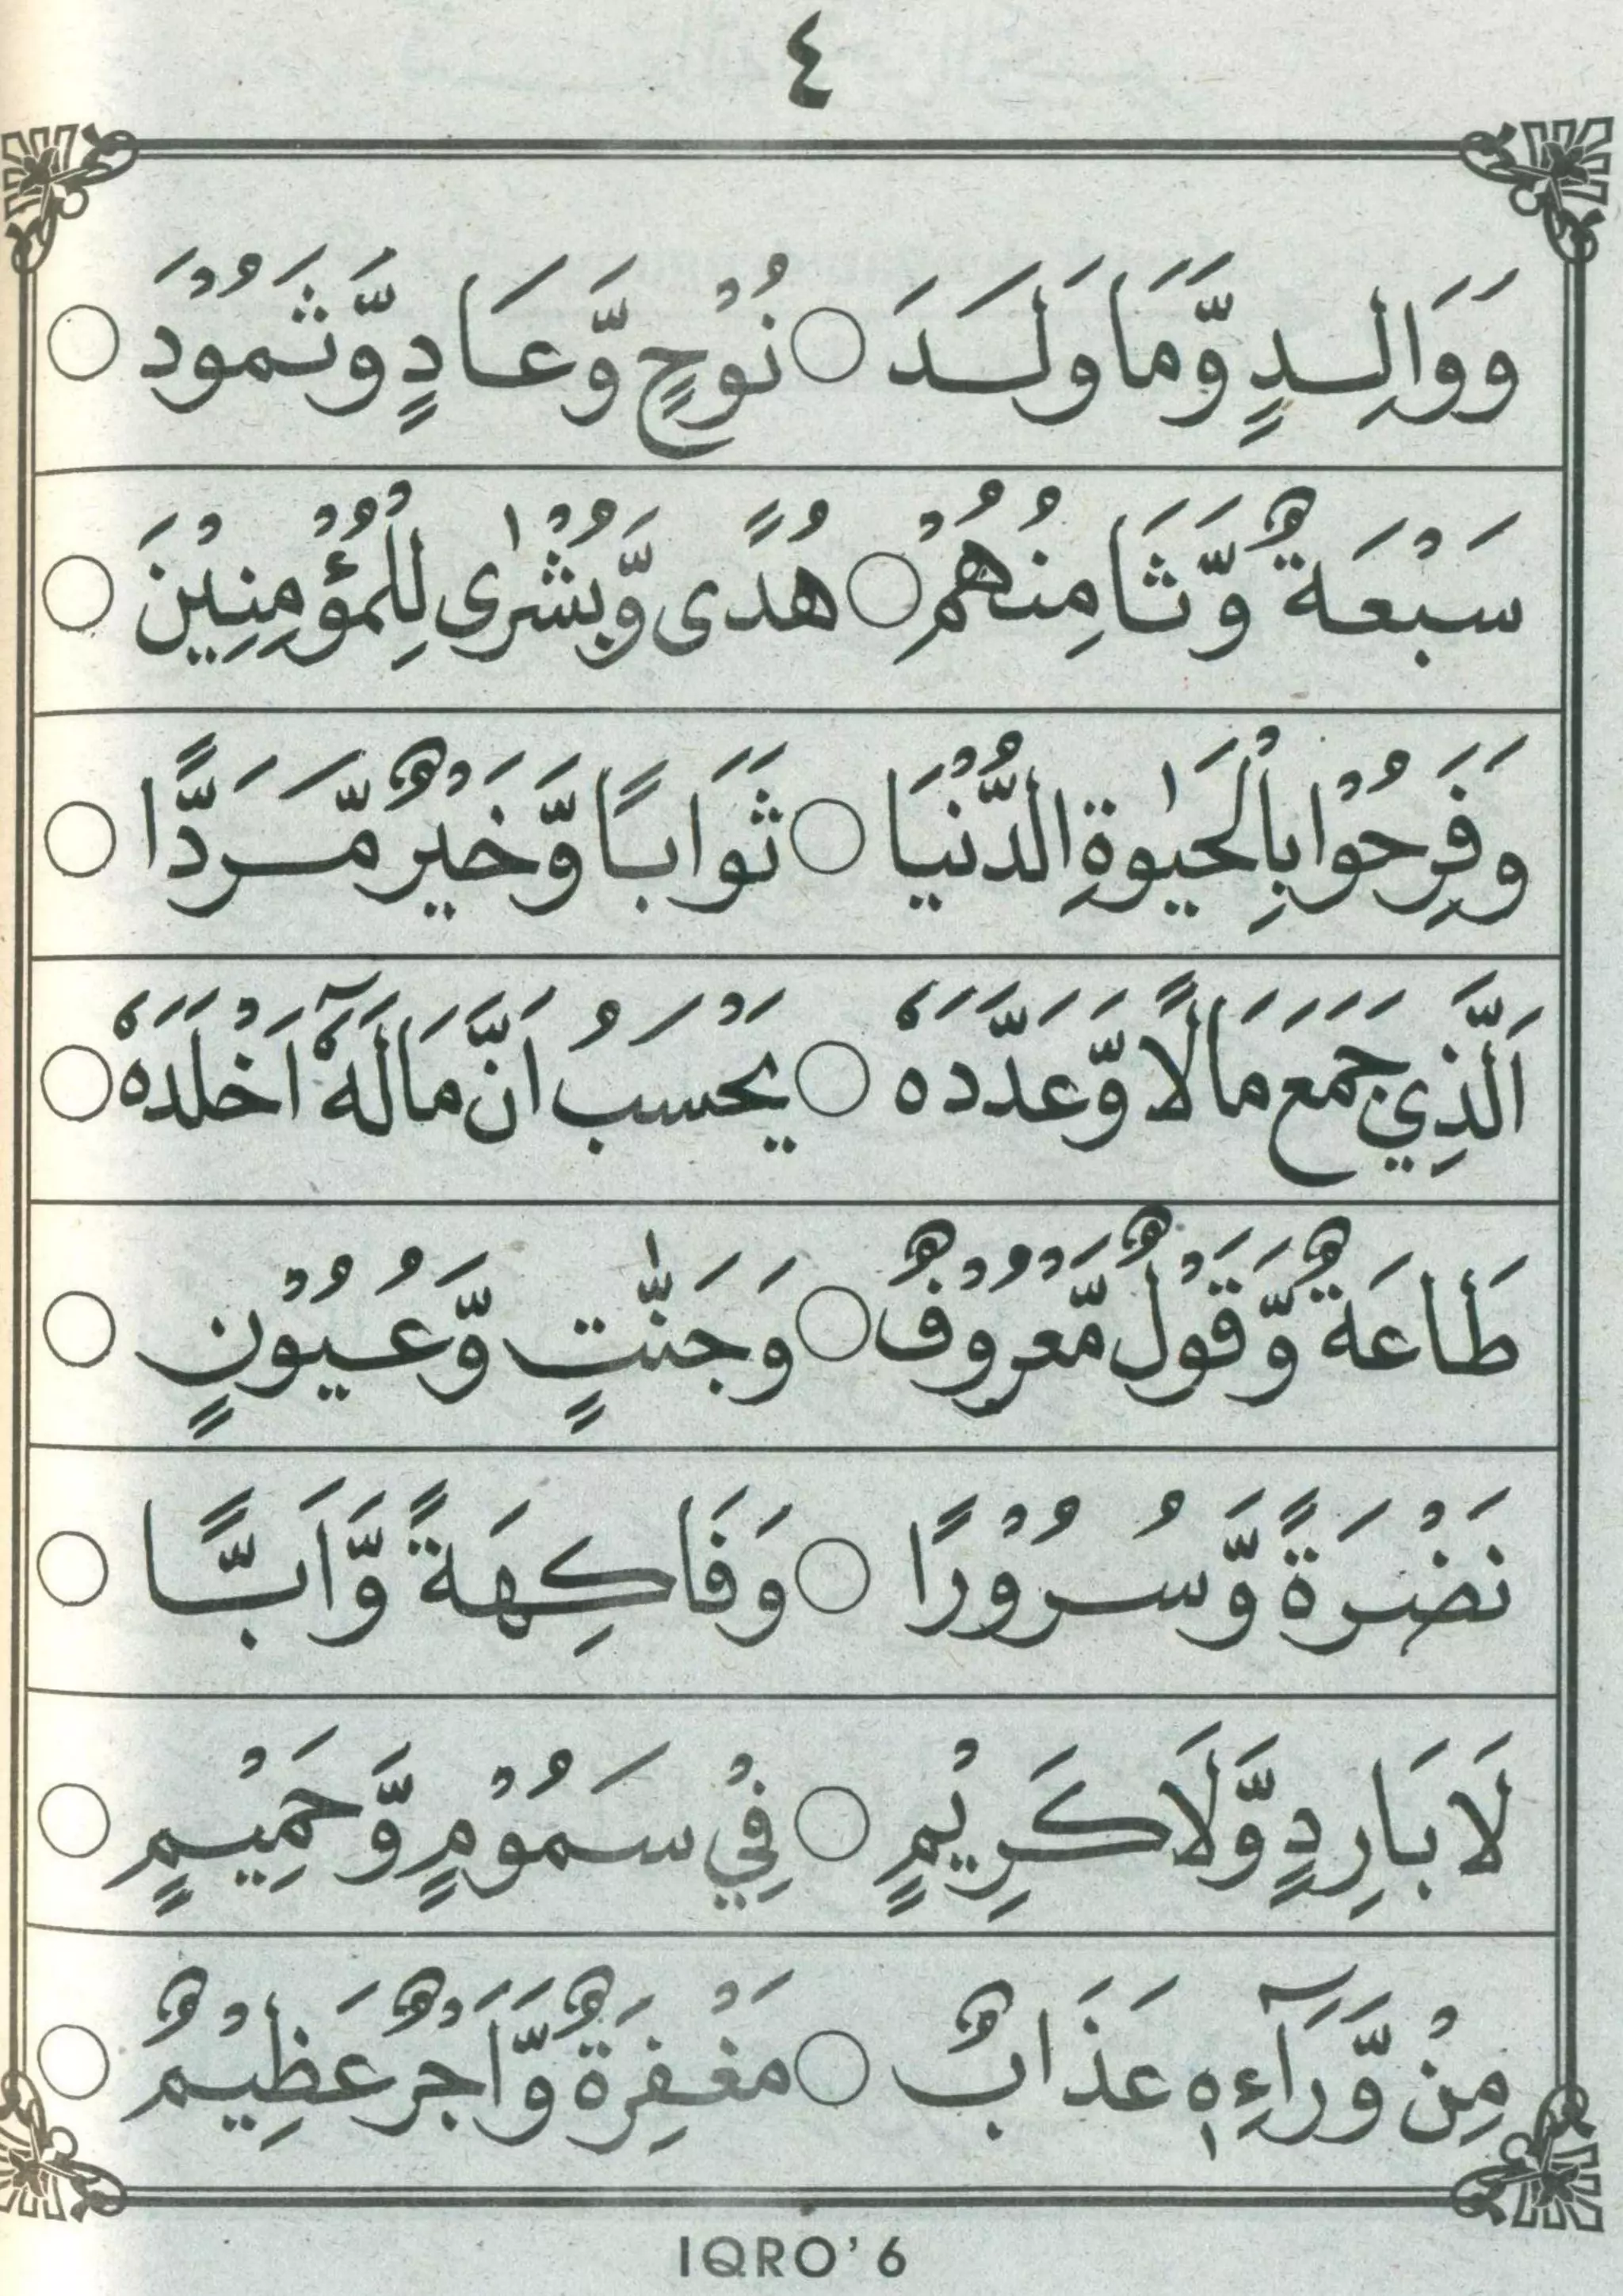 ٤
وَوَالِدٍ وَّمَا وَلَدَ ○ نُوْحٍ وَّعَادٍ وَّثَمُوْدَ ○
سَبْعَةٌ وَّثَامِنُهُمْ ○ هُدًى وَّبُشْرٰى لِلْمُؤْمِنِيْنَ ○
وَفَرِحُوْا بِالْحَيٰوةِ الدُّنْيَا ○ ثَوَابًا وَّخَيْرٌ مَّرَدًّا ○
اَلَّذِي جَمَعَ مَالًا وَّعَدَّدَهٗ ○ يَحْسَبُ اَنَّ مَالَهٗٓ اَخْلَدَهٗ ○
طَاعَةٌ وَّقَوْلٌ مَّعْرُوْفٌ ○ وَجَنّٰتٍ وَّعُيُوْنٍ ○
نَضْرَةً وَّسُرُوْرًا ○ وَفَاكِهَةً وَّاَبًّا ○
لَا بَارِدٍ وَّلَا كَرِيْمٍ ○ فِيْ سَمُوْمٍ وَّحَمِيْمٍ ○
مِنْ وَّرَآءِهٖ عَذَابٌ ○ مَغْفِرَةٌ وَّاَجْرٌ عَظِيْمٌ ○
IQRO' 6